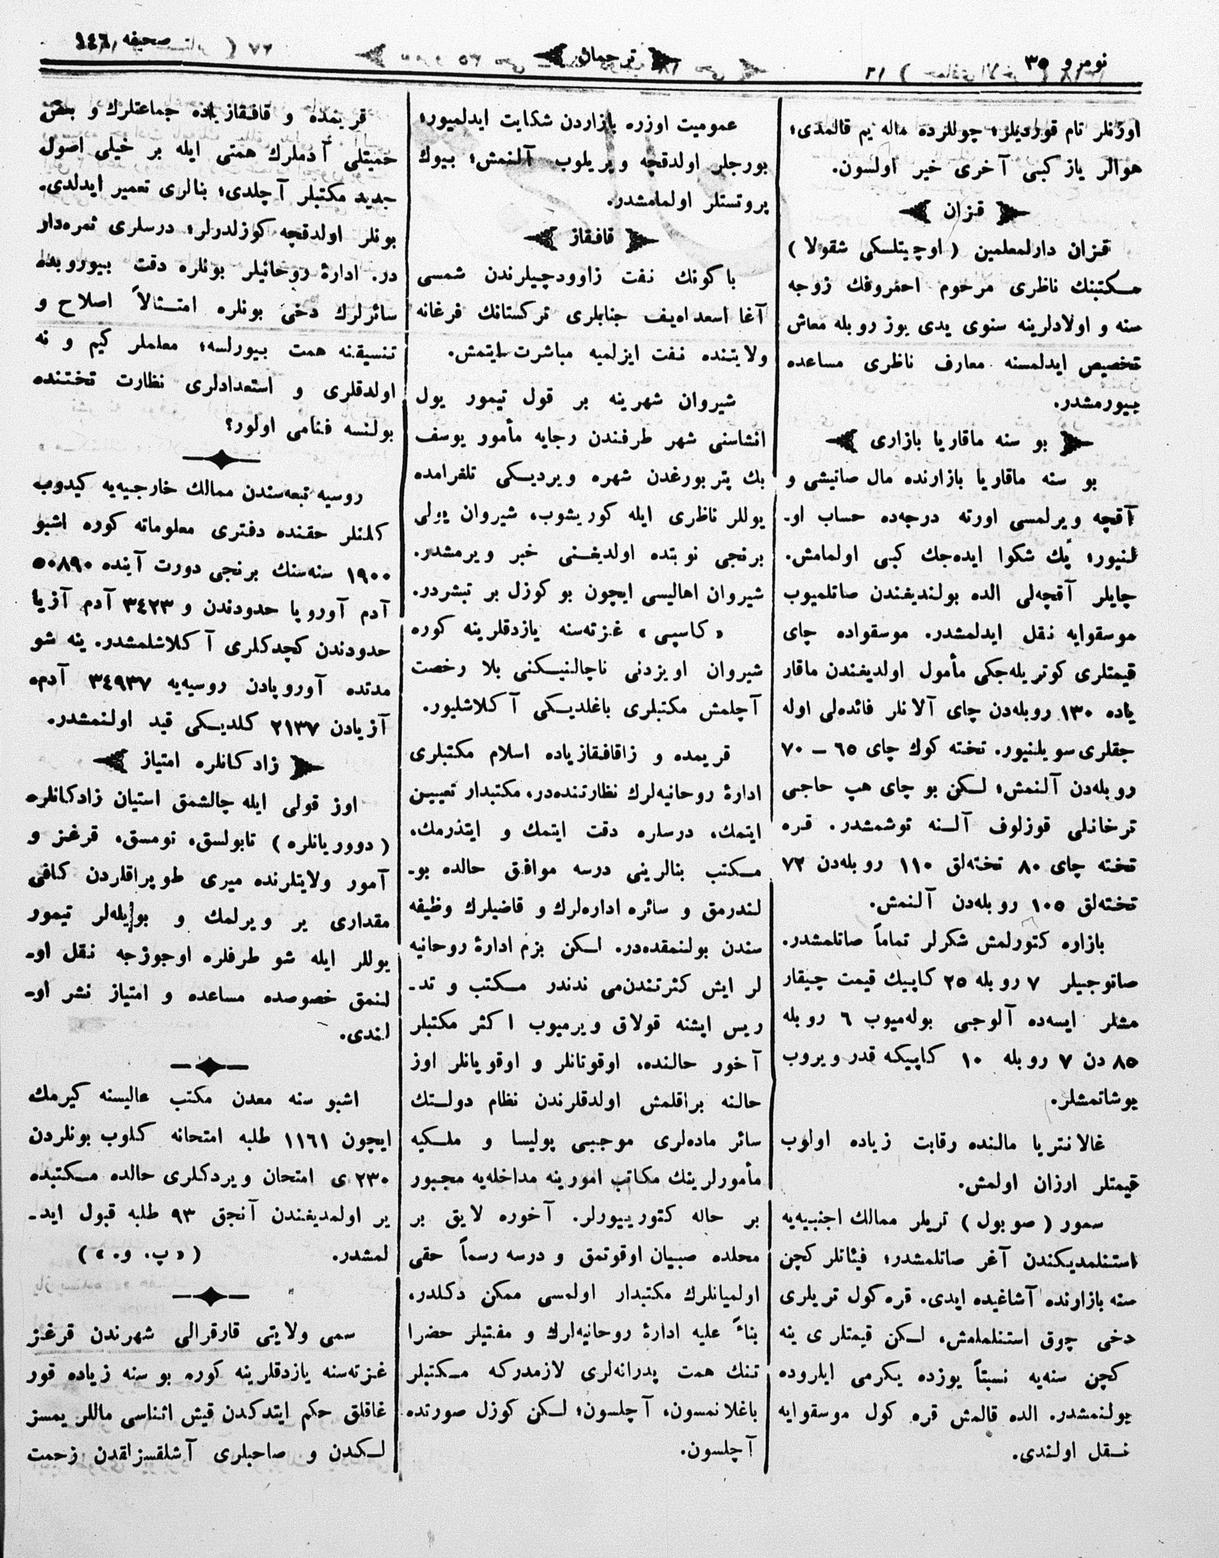 نومرو ٣٥
ترجمان
صحیفه ١٤٦
اوزنلر تام قوردیلر؛ چوللرده ماله یم قالمدی؛
هوالر یاز کبی آخری خیر اولسون.
قزان
قزان دارلمعلمین ( اوچیتلسکی شقولا )
مکتبنك ناظری مرحوم احمروفك زوجه
سنه و اولادلرینه سنوی یدی یوز روبله معاش
تخصیص ایدلمسنه معارف ناظری مساعده
بیورمشدر.
بو سنه ماقاریا بازاری
بو سنه ماقاریا بازارنده مال صاتیشی و
آقچه ویرلمسی اورته درجه‌ده حساب او-
لنیور؛ پك شکوا ایده‌جك کبی اولمامش.
چایلر آقچه‌لی الده بولندیغندن صاتلمیوب
موسقوایه نقل ایدلمشدر. موسقواده چای
قیمتلری کوتریله‌جکی مأمول اولدیغندن ماقار
یاده ١٣٠ روبله‌دن چای آلانلر فائده‌لی اوله
جقلری سویلنیور. تخته کوك چای ٦٥ – ٧٠
روبله‌دن آلنمش؛ لکن بو چای هپ حاجی
ترخانلی قوزلوف آلنه توشمشدر. قره
تخته چای ٨٠ تخته‌لق ١١٠ روبله‌دن ٧٢
تخته‌لق ١٠٥ روبله‌دن آلنمش.
بازاره کتورلمش شکرلر تماماً صاتلمشدر.
صاتوجیلر ٧ روبله ٢٥ کاپیك قیمت چیقار
مشلر ایسه‌ده آلوجی بوله‌میوب ٦ روبله
٨٥ دن ٧ روبله ١٠ کاپیکه قدر ویروب
بوشاتمشلر.
غالانتریا مالنده رقابت زیاده اولوب
قیمتلر ارزان اولمش.
سمور ( صوبول ) تریلر ممالك اجنبیه‌یه
استنلمدیکندن آغر صاتلمشدر؛ فیئاتلر کچن
سنه بازارنده آشاغیده ایدی. قره کول تریلری
دخی چوق استنلمامش، لکن قیمتلری ینه
کچن سنه‌یه نسبتاً یوزده یکرمی ایلروده
بولنمشدر. الده قالمش قره کول موسقوایه
نقل اولندی.
عمومیت اوزره بازاردن شکایت ایدلمیور؛
بورجلر اولدقچه ویریلوب آلنمش؛ بیوك
پروتستلر اولمامشدر.
قافقاز
باکونك نفت زاوودچیلرندن شمسی
آغا اسعداه‌یف جنابلری ترکستانك فرغانه
ولایتنده نفت ایزلمیه مباشرت ایتمش.
شیروان شهرینه بر قول تیمور یول
انشاسنی شهر طرفندن رجایه مأمور یوسف
بك پتربورغدن شهره ویردیکی تلغرامده
یوللر ناظری ایله کوریشوب، شیروان یولی
برنجی نوبتده اولدیغنی خبر ویرمشدر.
شیروان اهالیسی ایچون بو کوزل بر تبشردر.
«کاسپی» غزته‌سنه یازدقلرینه کوره
شیروان اویزدنی ناچالنیکنی بلا رخصت
آچلمش مکتبلری باغلدیکی آکلاشلیور.
قریمده و زاقافقازیاده اسلام مکتبلری
ادارۀ روحانیه‌لرك نظارتنده‌در، مکتبدار تعیین
ایتمك، درسلره دقت ایتمك و ایتدرمك،
مکتب بنالرینی درسه موافق حالده بو-
لندرمق و سائره اداره‌لرك و قاضیلرك وظیفه
سندن بولنمقده‌در. لکن بزم ادارۀ روحانیه
لر ایش کثرتندن‌می نه‌دندر مکتب و تد-
ریس ایشنه قولاق ویرمیوب اکثر مکتبلر
آخور حالنده، اوقوتانلر و اوقویانلر اوز
حالنه براقلمش اولدقلرندن نظام دولتك
سائر ماده‌لری موجبی پولیسا و ملکیه
مأمورلرینك مکاتب امورینه مداخله‌یه مجبور
بر حاله کتورییورلر. آخوره لایق بر
محلده صبیان اوقوتمق و درسه رسماً حقی
اولمیانلرك مکتبدار اولمسی ممکن دکلدر.
بناءً علیه ادارۀ روحانیه‌لرك و مفتیلر حضرا
تنك همت پدرانه‌لری لازمدرکه مکتبلر
باغلانمسون، آچلسون؛ لکن کوزل صورتده
آچلسون.
قریمده و قافقازیاده جماعتلرك و بعض
حمیتلی آدملرك همتی ایله بر خیلی اصول
جدید مکتبلر آچلدی؛ بنالری تعمیر ایدلدی.
بونلر اولدقچه کوزلدرلر؛ درسلری ثمره‌دار
در. ادارۀ روحانیلر بونلره دقت بیوروبده
سائرلرك دخی بونلره امتثالاً اصلاح و
تنسیقنه همت بیورلسه؛ معلملر کیم و نه
اولدقلری و استعدادلری نظارت تختنده
بولنسه فنامی اولور؟
روسیه تبعه‌سندن ممالك خارجیه‌یه کیدوب
کلنلر حقنده دفتری معلوماته کوره اشبو
١٩٠٠ سنه‌سنك برنجی دورت آینده ٥٠٨٩٠
آدم آوروپا حدودندن و ٣٤٢٣ آدم آزیا
حدودندن کچدکلری آکلاشلمشدر. ینه شو
مدتده آوروپادن روسیه‌یه ٣٤٩٣٧ آدم،
آزیادن ٢١٣٧ کلدیکی قید اولنمشدر.
زادکانلره امتیاز
اوز قولی ایله چالشمق استیان زادکانلره
( دووریانلره ) تابولسق، تومسق، قرغز و
آمور ولایتلرنده میری طوپراقلردن کافی
مقداری یر ویرلمك و بویله‌لر تیمور
یوللر ایله شو طرفلره اوجوزجه نقل او-
لنمق خصوصده مساعده و امتیاز نشر او-
لندی.
اشبو سنه معدن مکتب عالیسنه کیرمك
ایچون ١١٦١ طلبه امتحانه کلوب بونلردن
٢٣٠ ی امتحان ویردکلری حالده مکتبده
یر اولمدیغندن آنجق ٩٣ طلبه قبول اید-
لمشدر. ( «پ. و.» )
سمی ولایتی قارقرالی شهرندن قرغز
غزته‌سنه یازدقلرینه کوره بو سنه زیاده قور
غاقلق حکم ایتدکدن قیش اثناسی ماللر یمسز
لکدن و صاحبلری آشلقسزلقدن زحمت